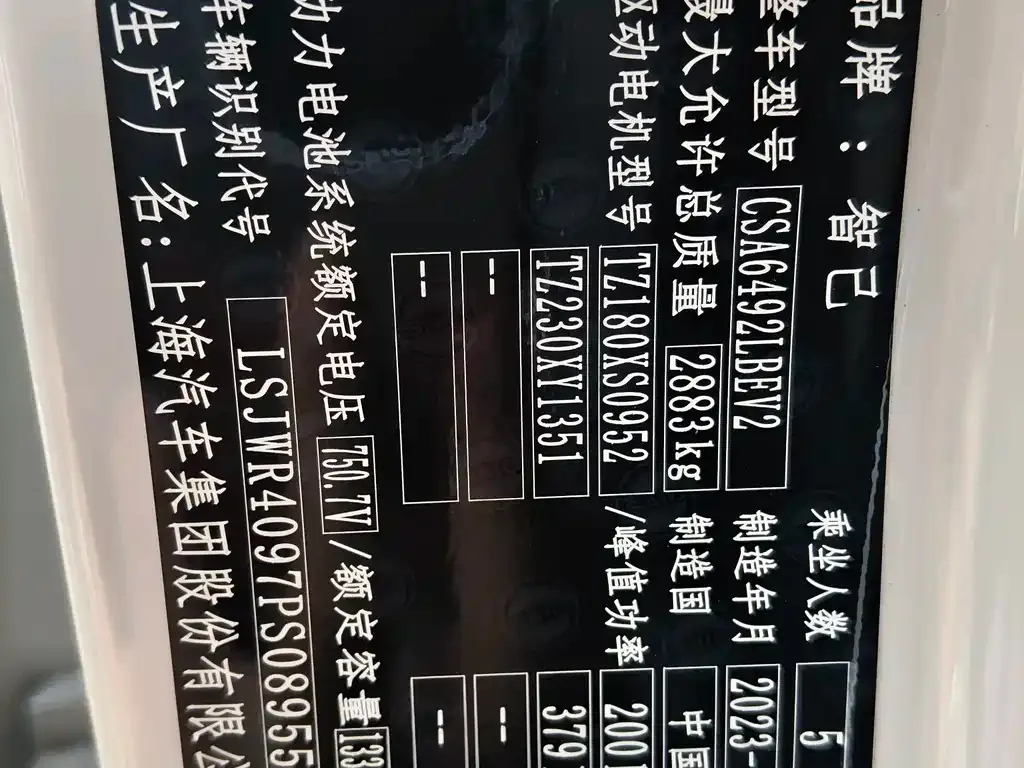 品牌：智己 乘坐人数 5
整车型号 CSA6492LBEV2 制造年月 2023-
最大允许总质量 2883kg 制造国 中国
驱动电机型号 TZ180XS0952 /峰值功率 200
TZ230XY1351 379
-- --
-- --
动力电池系统额定电压 750.7V /额定容量 133
车辆识别代号 LSJWR4097PS08955
生产厂名：上海汽车集团股份有限公